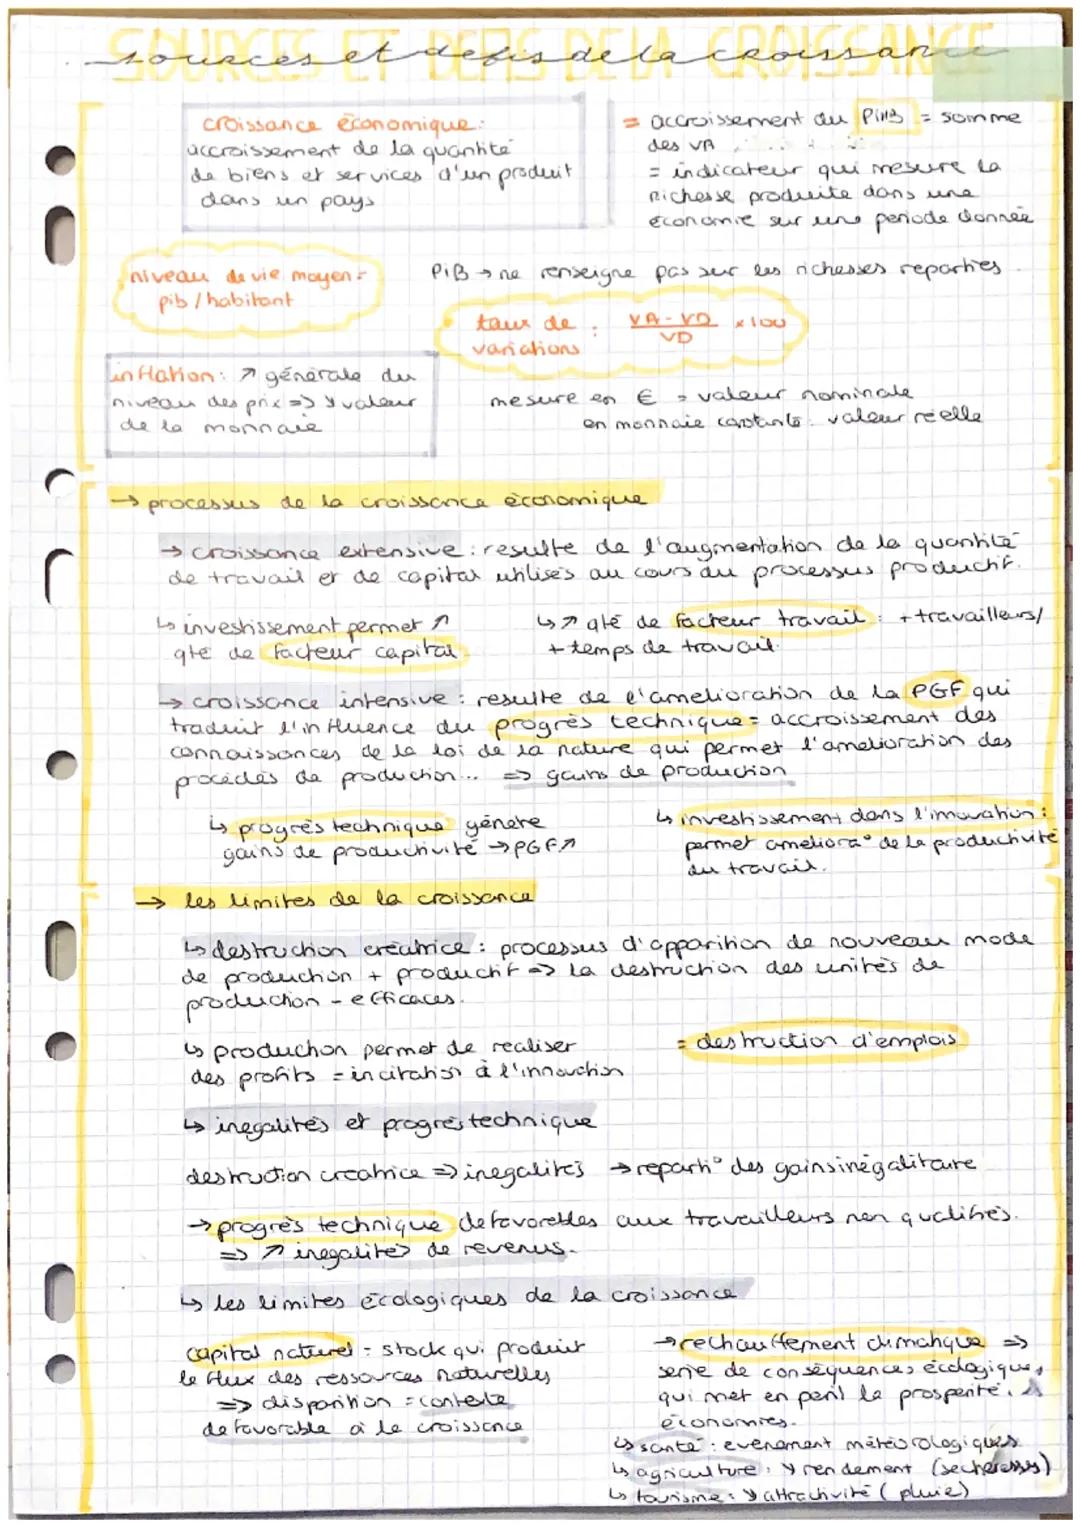 SOURCES ET DEFIS DE LA CROISSANCE
sources et defis de la croissance
croissance économique:
accroissement de la quantité
de biens et services d'un produit
dans un pays
= accroissement du PIB = somme
des VA
= indicateur qui mesure la
richesse produite dans une
économie sur une periode donnée
niveau de vie moyen =
pib / habitant
PIB → ne renseigne pas sur les richesses reparties
taux de variations : VA - VD / VD × 100
inflation: ↗ générale du
niveau des prix => ↘ valeur
de la monnaie
mesure en € = valeur nominale
en monnaie constante: valeur réelle
→ processus de la croissance économique
→ croissance extensive : resulte de l'augmentation de la quantité
de travail et de capital utilisés au cours du processus productif.
↳ investissement permet ↗
qté de facteur capital
↳ ↗ qté de facteur travail : + travailleurs/
+ temps de travail.
→ croissance intensive : resulte de l'amelioration de la PGF qui
traduit l'influence du progrès technique = accroissement des
connaissances de la loi de la nature qui permet l'amelioration des
procédés de production... => gains de production
↳ progrès technique génère
gains de productivité → PGF ↗
↳ investissement dans l'innovation :
permet ameliora° de la productivité
du travail.
→ les limites de la croissance
↳ destruction créatrice : processus d'apparition de nouveau mode
de production + productif => la destruction des unités de
production - efficaces.
↳ production permet de realiser
des profits = incitation à l'innovation
= destruction d'emplois
↳ inegalités et progrès technique
destruction creatrice => inegalités → reparti° des gains inégalitaire
→ progrès technique defavorables aux travailleurs non qualifiés.
=> ↗ inegalités de revenus.
↳ les limites écologiques de la croissance
capital naturel = stock qui produit
le flux des ressources naturelles
=> disparition = contexte
defavorable à la croissance
→ rechauffement climatique =>
serie de conséquences écologiques,
qui met en peril la prosperité des
économies.
↳ santé : evenement météorologiques
↳ agriculture : ↘ rendement (secheresses)
↳ tourisme : ↘ attractivité (pluie)